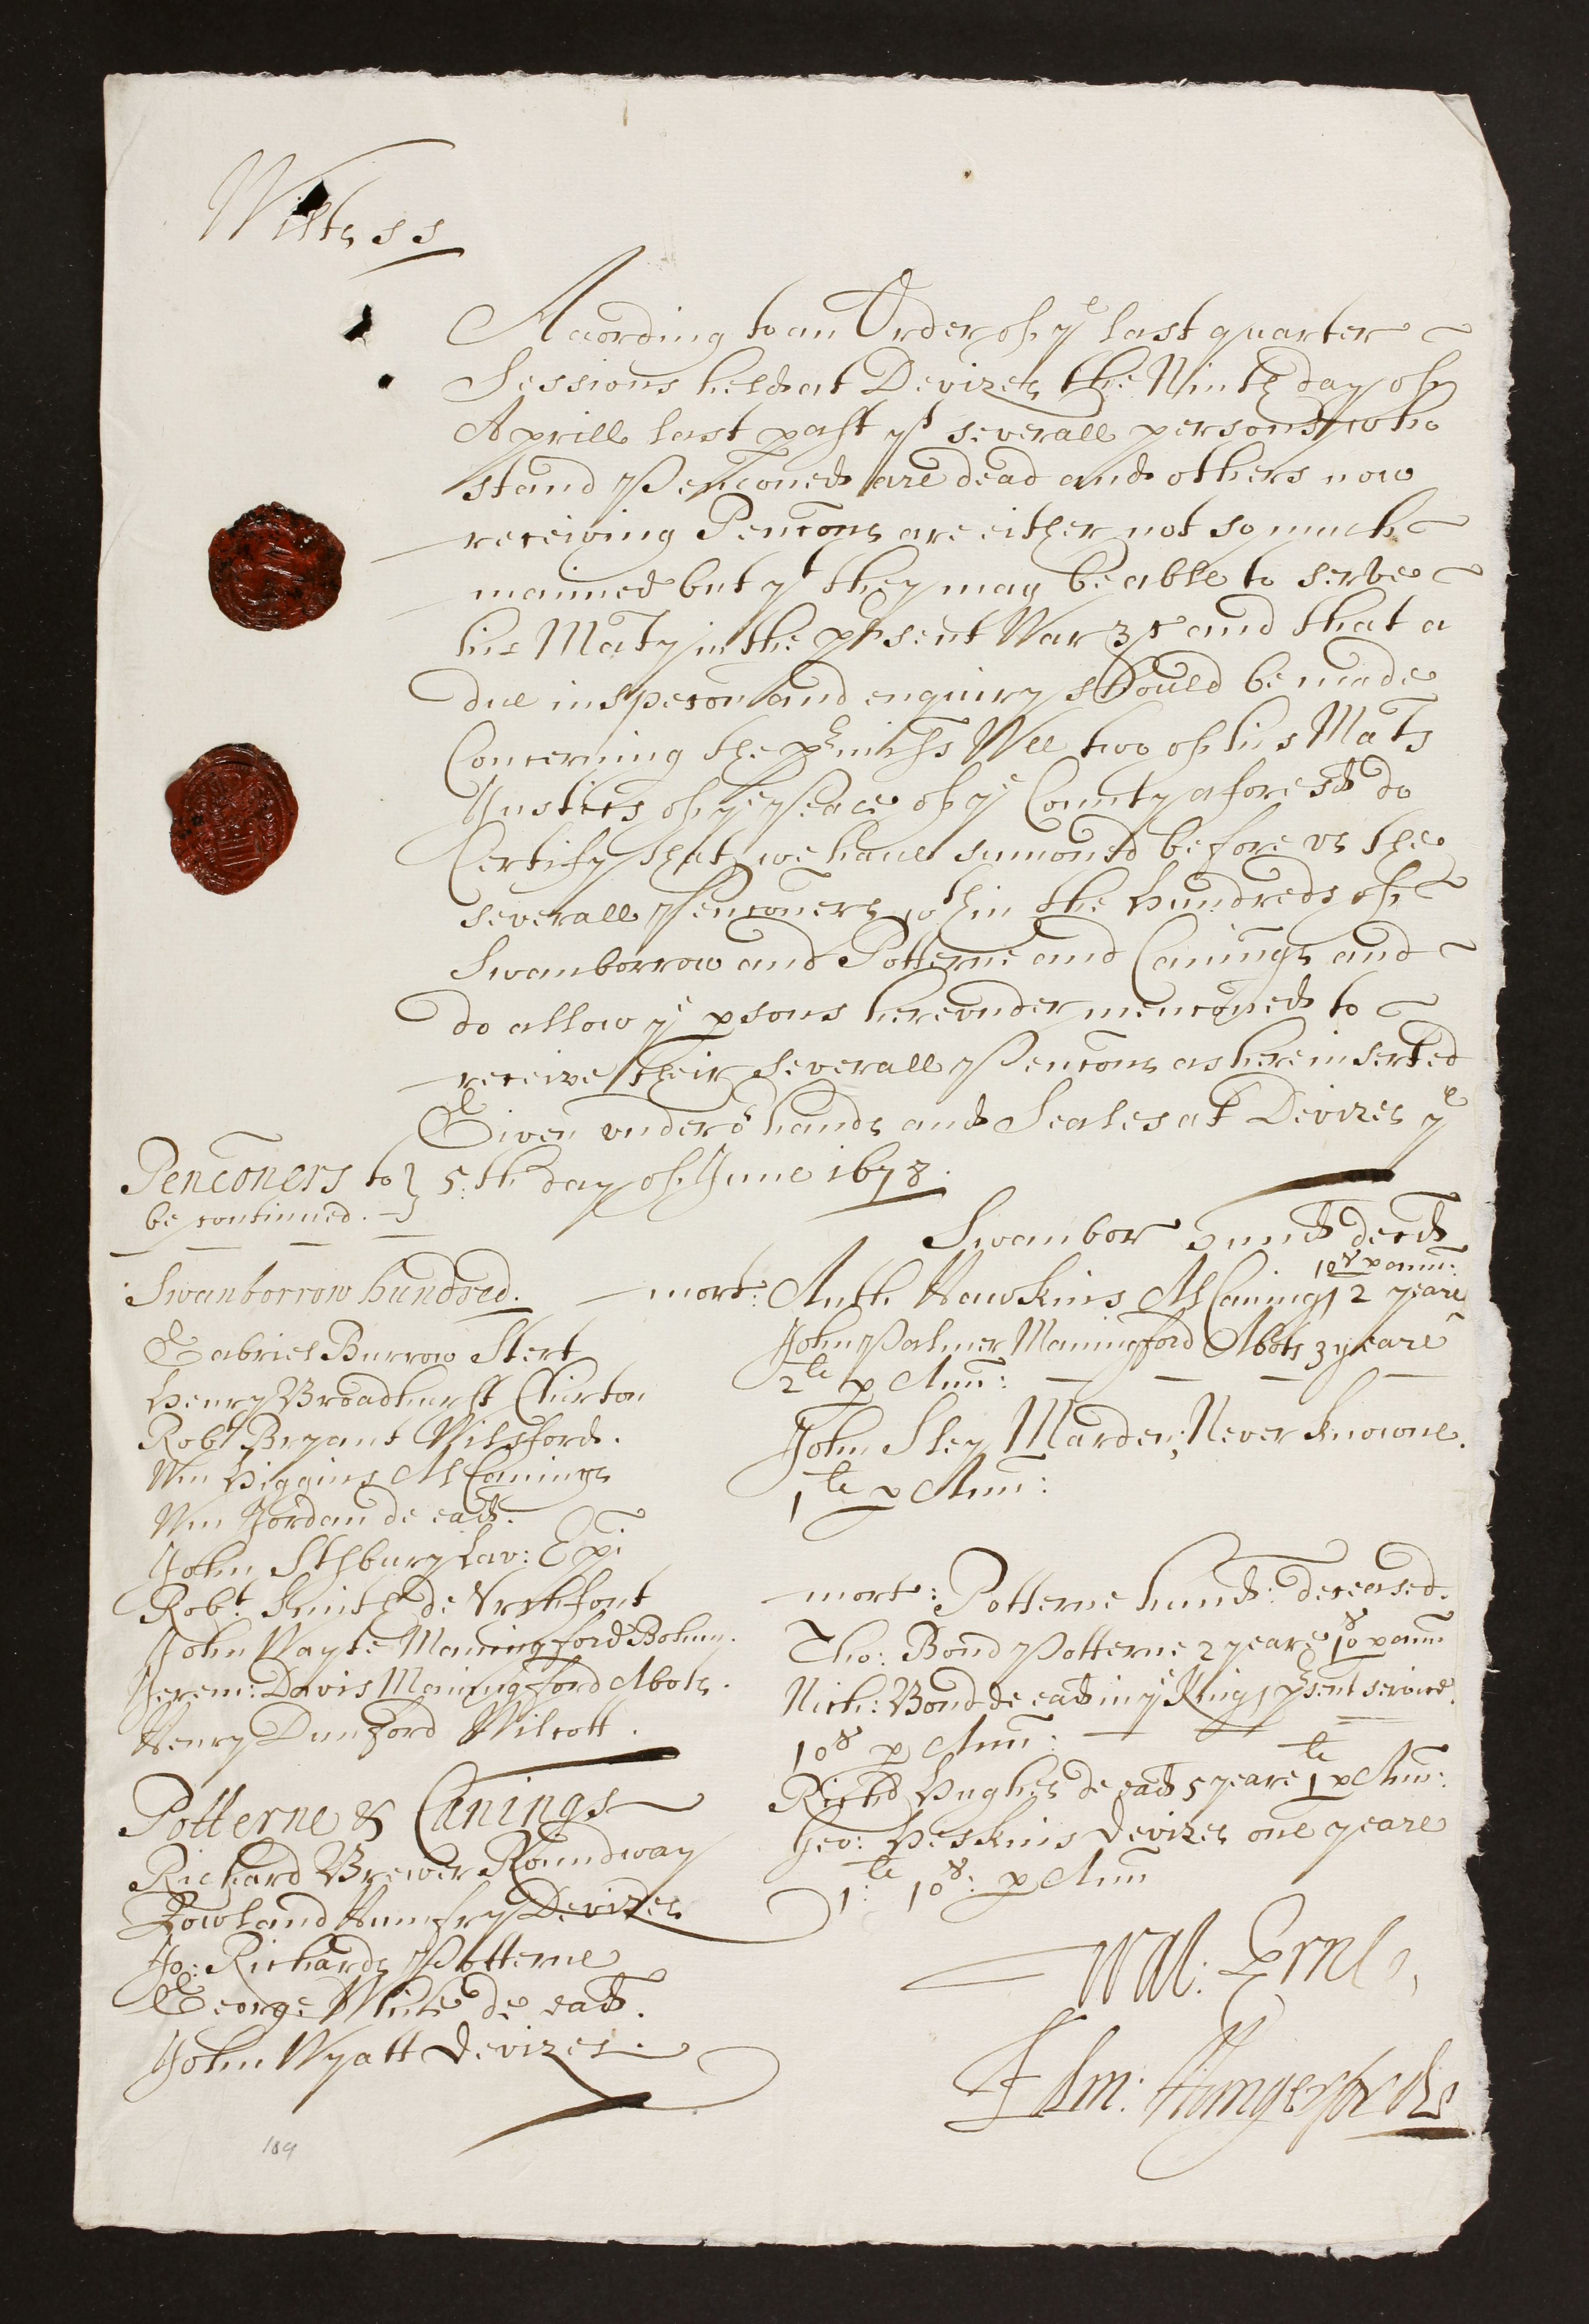 Wilts ss
Acording to an Order of ye last quarter
Sessions held at Devizes the Ninth day of
Aprill last past yt severall persons who
stand Penconed are dead and others now
receiving Pencons are either not so much
maimed but yt they may be able to serve
his Maty in the prsent War &c and that a
due inspecon and enquiry should be made
Concerning the prmises Wee two of his Mats
Justices of ye Peace of ye County aforesd do
Certify that we haue sumoned before vs the
severall Penconers wthin the hundreds of
Swanborrow and Potterne and Canings and
do allow ye psons herevnder menconed to
receive their severall Pencons as here inserted
Given vnder or hands and Seales at Devizes ye
5th day of June 1678.
Penconers to
be continued.
Swanborrow hundred.
Gabriel Burrow Stert
Henry Broadhurst Chirton
Robt Bryant Wilsford.
Wm Higgins All Canings
Wm Jordan de ead.
John Lav: Epi
Robt. Smith de Vrchfont
John Wayte Maningford Bohun.
Jerem: Davis Maningford Abots.
Henry Dunford Wilcott.
Potterne & Canings
Richard Brewer Roundway
Rowland Humfry Devizes
Jo: Richards Potterne
George White de ead.
John Wyatt Devizes.
Swanbor hund decd
10s p ann:
mort: Anth Hawkins All Canings 2 yeare
John Palmer Maningford Abots 3 yeare
2le p Ann:
John Sley Marden, Never knowne.
1le p Ann:
mort: Potterne hund: deceased.
Tho: Bond Potterne 2 yeare 10s p ann
Nich: Bond de ead in ye Kings prsent service.
10s p Ann:
Richd Hughes de ead 5 yeare 1le p Ann:
Geo: Heskins Devizes one yeare
1le: 10s: p Ann
Wal: Ernle,
Edm: Hungerford
189